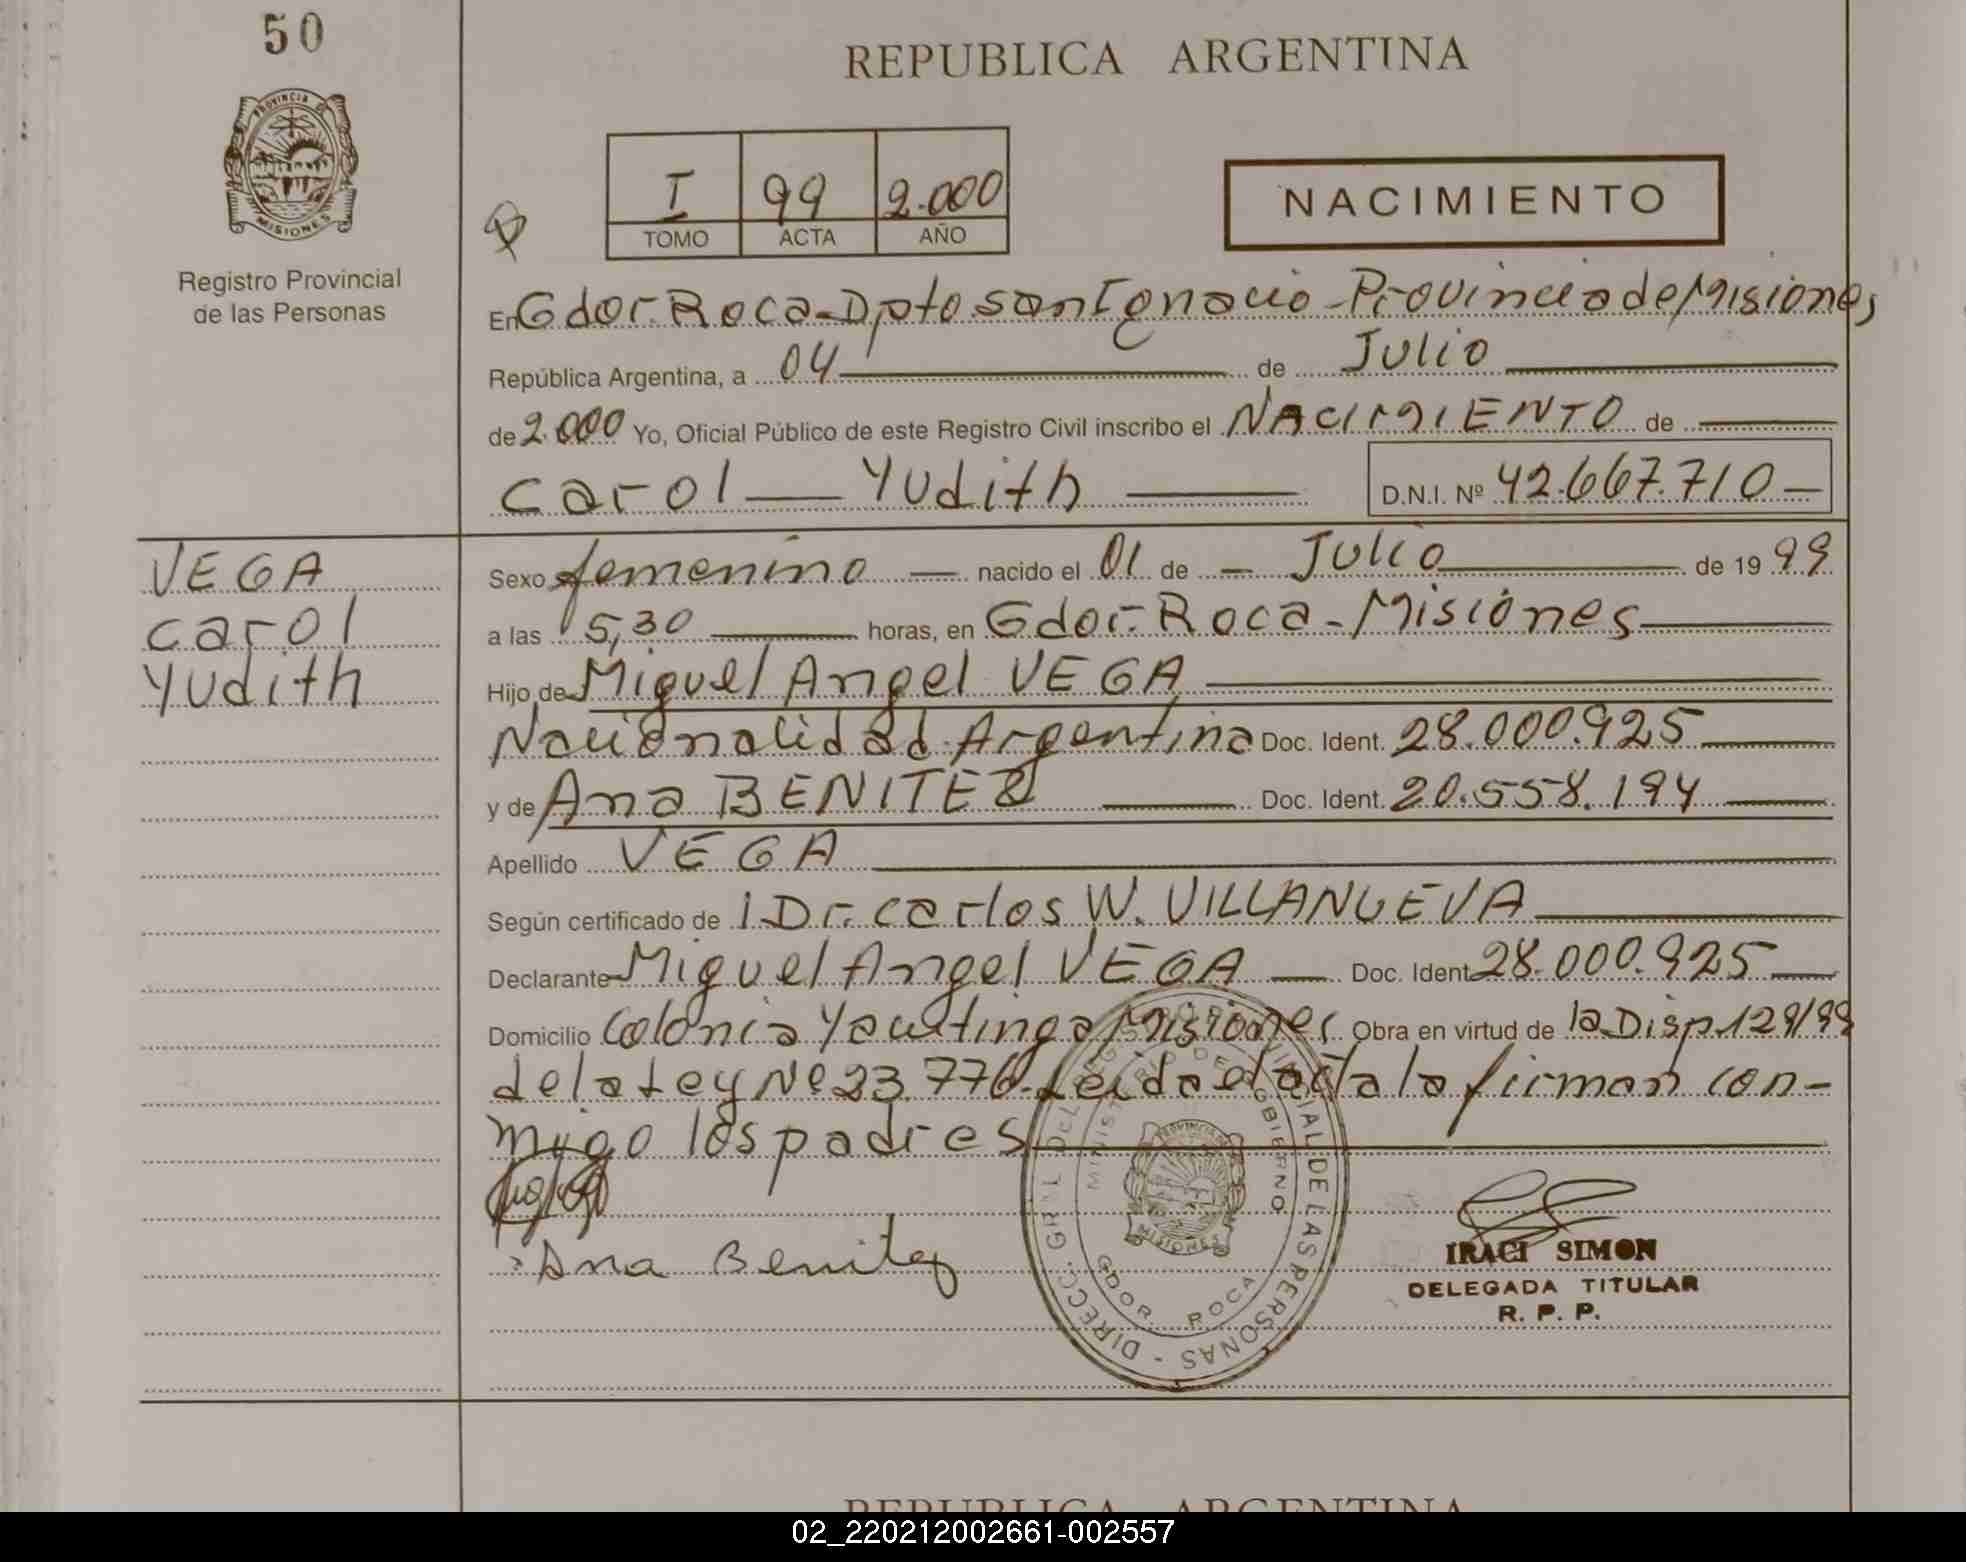 50
REPUBLICA ARGENTINA
PROVINCIA DE
MISIONES
Registro Provincial
de las Personas
I 99 2.000
TOMO ACTA AÑO
NACIMIENTO
En Gdor. Roca - Dpto San Ignacio - Provincia de Misiones
República Argentina, a 04 de Julio
de 2.000 Yo, Oficial Público de este Registro Civil inscribo el NACIMIENTO de
Carol Yudith D.N.I. Nº 42.667.710
VEGA
Carol
Yudith
Sexo femenino nacido el 01 de Julio de 19 99
a las 5,30 horas, en Gdor. Roca - Misiones
Hijo de Miguel Angel VEGA
Nacionalidad Argentina Doc. Ident. 28.000.925
y de Ana BENITEZ Doc. Ident. 20.558.194
Apellido VEGA
Según certificado de 1 Dr. Carlos W. VILLANUEVA
Declarante Miguel Angel VEGA Doc. Ident. 28.000.925
Domicilio Colonia Yacutinga Misiones Obra en virtud de la Disp. 129/99
de la Ley Nº 23.776. Leida el acta la firman con-
migo los padres
Ana Benitez
MINISTERIO DE GOBIERNO
PROVINCIA DE
MISIONES
GDOR. ROCA
IRACI SIMON
DELEGADA TITULAR
R. P. P.
REPUBLICA ARGENTINA
02_220212002661-002557